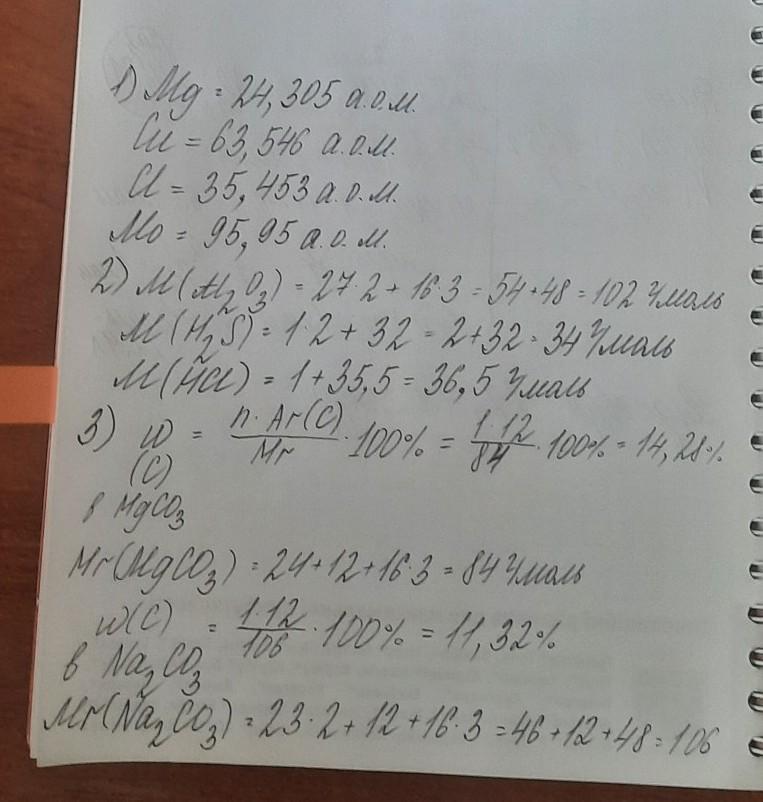 1) Mg = 24,305 а.о.м.
Cu = 63,546 а.о.м.
Cl = 35,453 а.о.м.
Mo = 95,95 а.о.м.
2) M(Al₂O₃) = 27·2 + 16·3 = 54+48 = 102 г/моль
M(H₂S) = 1·2 + 32 = 2+32 = 34 г/моль
M(HCl) = 1+35,5 = 36,5 г/моль
3) w = n·Ar(C)/Mr · 100% = 1·12/84 · 100% = 14,28%
(C)
в MgCO₃
Mr(MgCO₃) = 24+12+16·3 = 84 г/моль
w(C) = 1·12/106 · 100% = 11,32%
в Na₂CO₃
Mr(Na₂CO₃) = 23·2 + 12 + 16·3 = 46+12+48 = 106